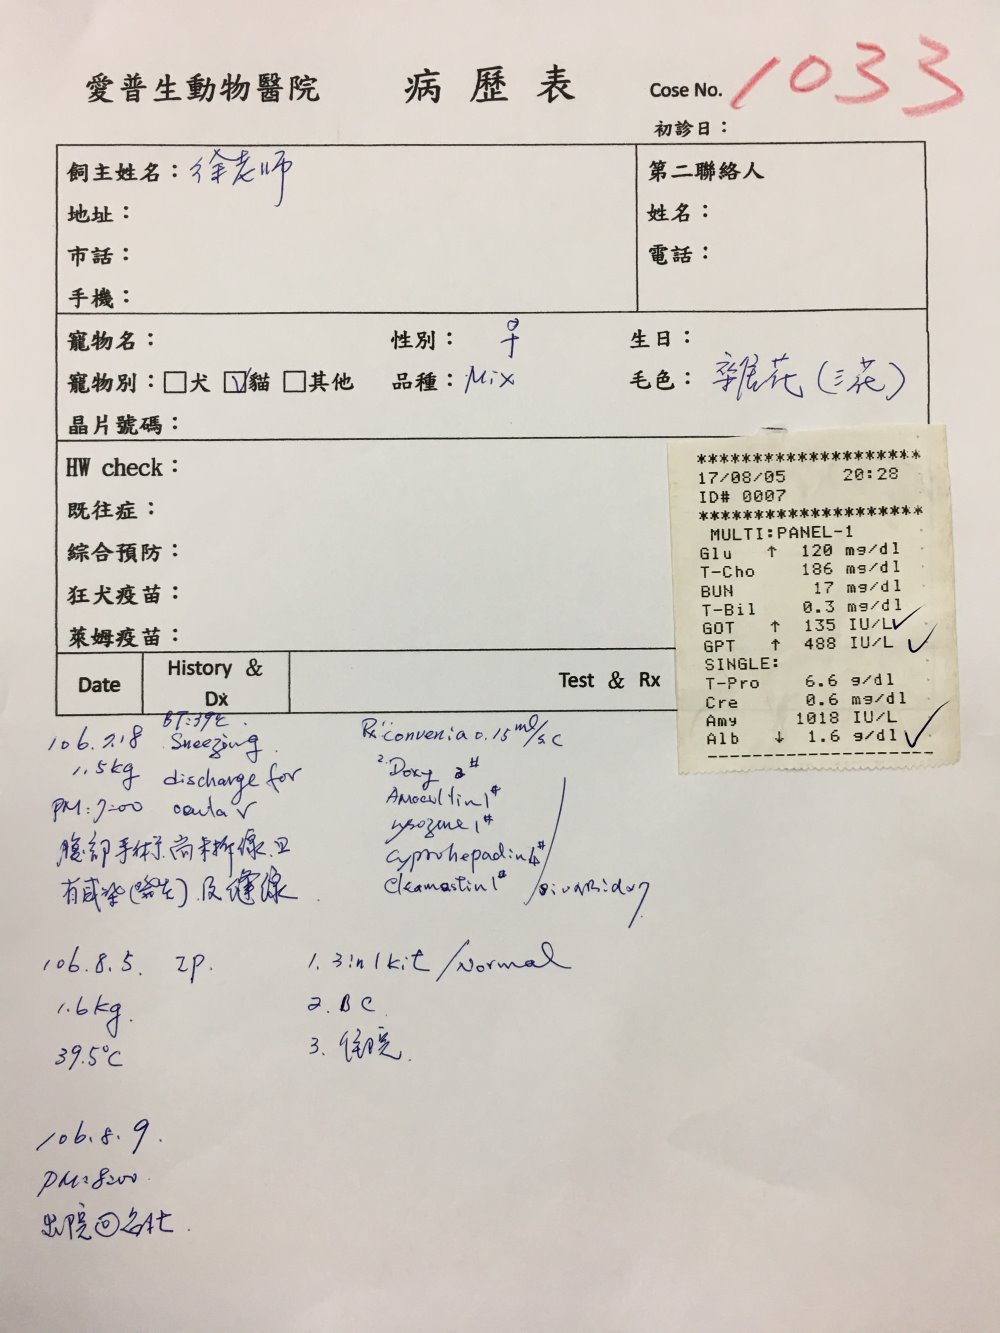 愛普生動物醫院 病歷表 Cose No. 1033
初診日：
飼主姓名：徐老师
地址：
市話：
手機：
第二聯絡人
姓名：
電話：
寵物名： 性別：♀ 生日：
寵物別：□犬 ☑貓 □其他 品種：Mix 毛色：雜花(三花)
晶片號碼：
HW check：
既往症：
綜合預防：
狂犬疫苗：
萊姆疫苗：
********************
17/08/05 20:28
ID# 0007
********************
MULTI:PANEL-1
Glu ↑ 120 mg/dl
T-Cho 186 mg/dl
BUN 17 mg/dl
T-Bil 0.3 mg/dl
GOT ↑ 135 IU/L ✓
GPT ↑ 488 IU/L ✓
SINGLE:
T-Pro 6.6 g/dl
Cre 0.6 mg/dl
Amy 1018 IU/L
Alb ↓ 1.6 g/dl ✓
--------------------
Date History & Dx Test & Rx
BT:39℃.
106.7.18 Sneezing.
1.5kg discharge for
PM:7:00
腹部手術 尚未拆線 且
有感染 及縫線
Rx: 1. convenia 0.15ml/sc
2. Doxy 2#
1#
lysozyme 1#
cyprohepadin 4#
Clemastin 1#
106.8.5. IP.
1.6kg.
39.5°C
1. 3in1 kit /Normal
2. BC
3. 住院.
106.8.9.
PM:8:00.
出院回